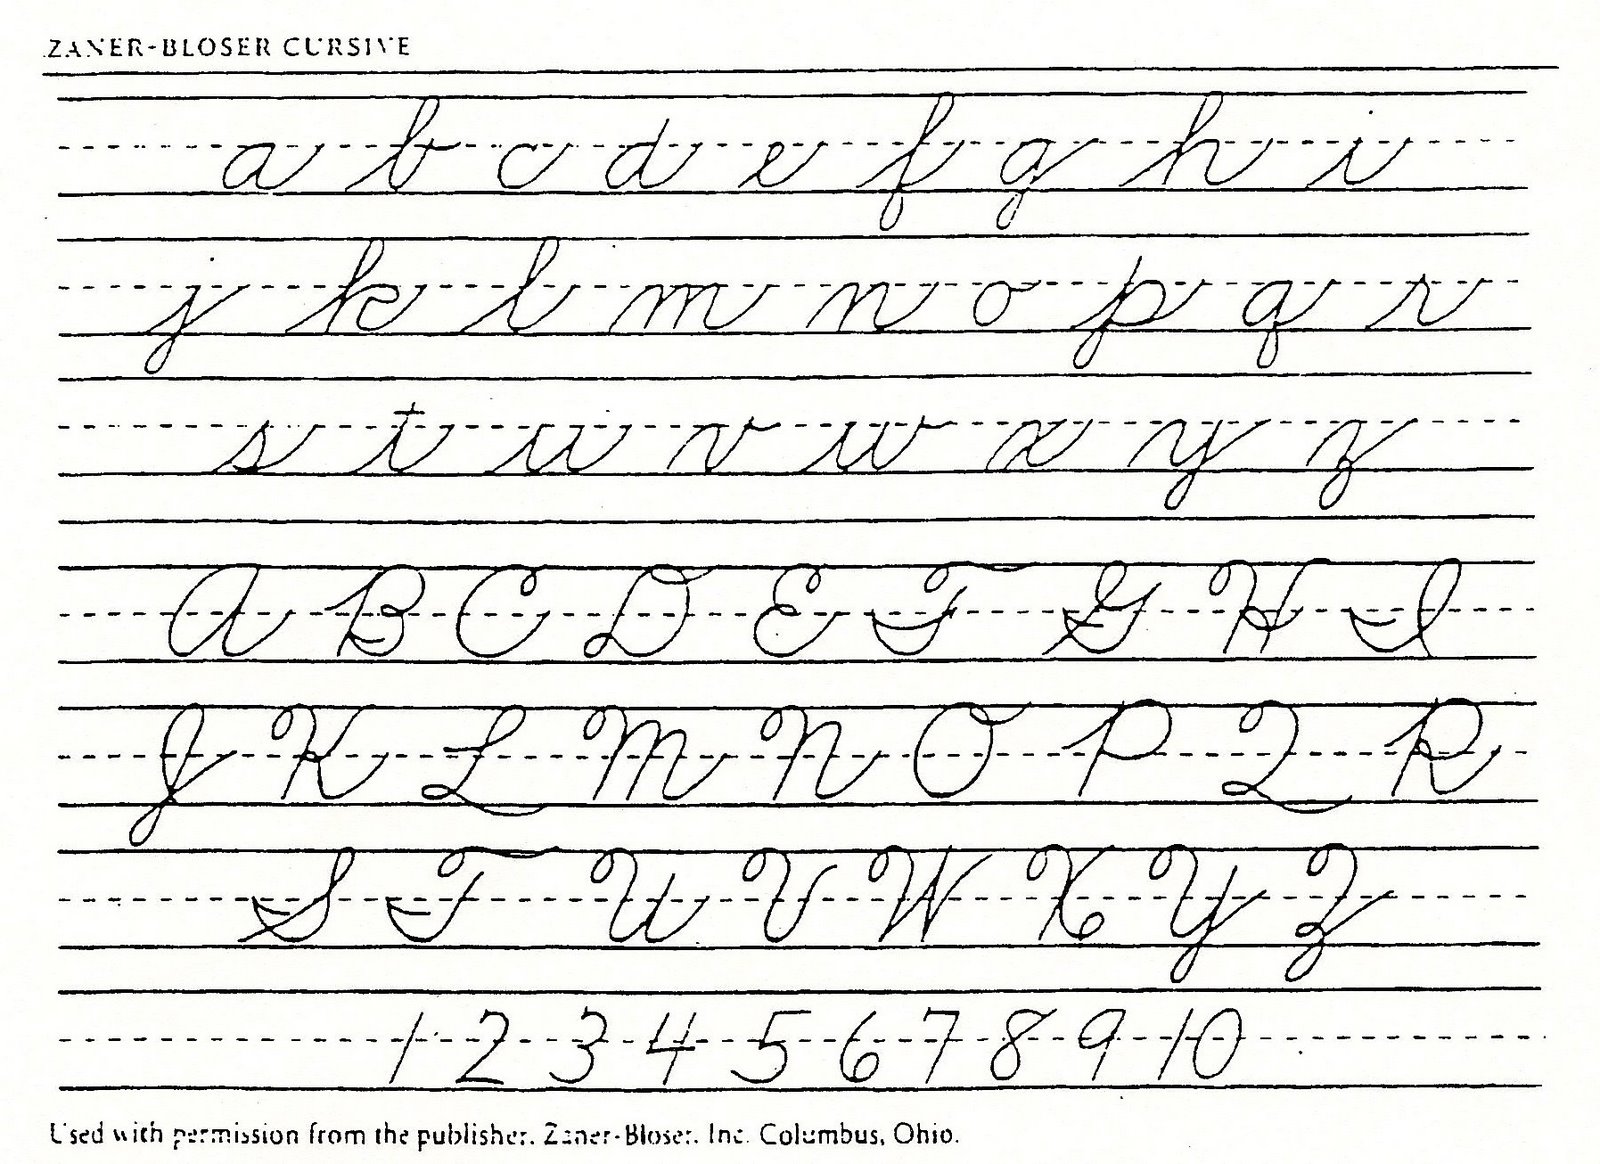 ZANER-BLOSER CURSIVE
a b c d e f g h i
j k l m n o p q r
s t u v w x y z
A B C D E F G H I
J K L M N O P Q R
S T U V W X Y Z
1 2 3 4 5 6 7 8 9 10
Used with permission from the publisher. Zaner-Bloser, Inc. Columbus, Ohio.